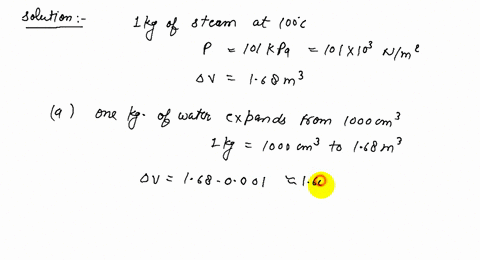 Solution:-
1kg of steam at 100°c
P = 101 KPa = 101 X10³ N/m²
ΔV = 1.68 m³
(a) one kg. of water expands from 1000 cm³
1 kg = 1000 cm³ to 1.68 m³
ΔV = 1.68 - 0.001 ≈ 1.6